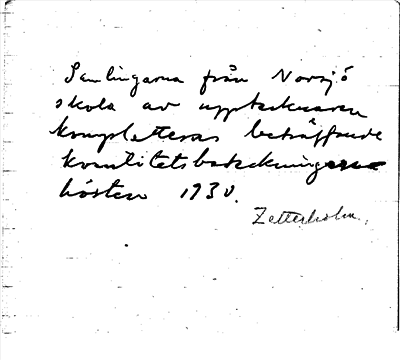 Samlingarna från Norsjö
skola av upptecknaren
kompletteras beträffande
kvantitetsbeteckningen
hösten 1930.
Zetterholm.